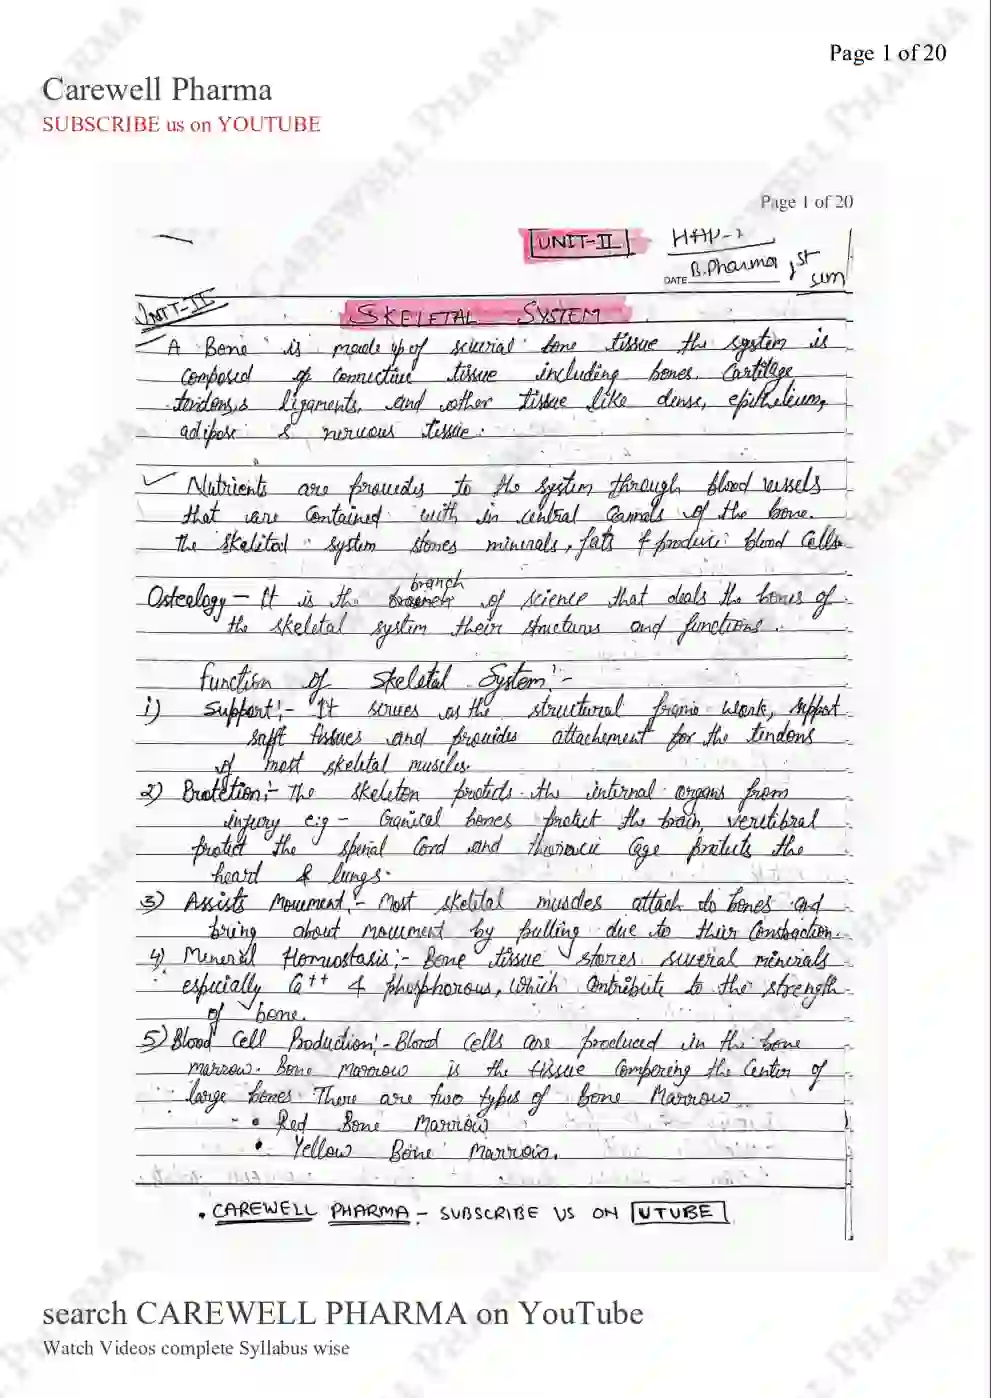 Page 1 of 20
Carewell Pharma
SUBSCRIBE us on YOUTUBE
Page 1 of 20
UNIT-II HAP-1
DATE B.Pharma 1st
sem
UNIT-II
SKELETAL SYSTEM
A Bone is made up of several bone tissue the system is
composed of connective tissue including bones, Cartilage
tendons, ligaments, and other tissue like dense, epithelium,
adipose & nervous tissue.
Nutrients are provides to the system through blood vessels
that are Contained with in central Cannals of the bone.
the skeletal system stones minerals, fats & produce blood Cells
branch
Osteology - It is the of science that deals the bones of
the skeletal system their structures and functions.
function of Skeletal System:-
1) Support:- It serves as the structural frame work, support
safft tissues and provides attachement for the tendons
of most skeletal muscles.
2) Protetion:- The skeleton protects the internal organs from
injury e.g - Cranical bones protect the brain, veretibral
protect the spinal Cord and thoracic Cage protects the
heard & lungs.
3) Assists Movement:- Most skeletal muscles attach to bones and
bring about movement by pulling due to their Constraction.
4) Mineral Homeostasis:- Bone tissue stores several minerals
especially Ca++ & phosphorous, which contribute to the strength
of bone.
5) Blood Cell Production:- Blood Cells are produced in the bone
marrow. Bone Marrow is the tissue Compering the Center of
large bones There are two types of Bone Marrow
• Red Bone Marrow
• Yellow Bone Marrow.
• CAREWELL PHARMA - SUBSCRIBE US ON UTUBE
search CAREWELL PHARMA on YouTube
Watch Videos complete Syllabus wise
CAREWELL PHARMA